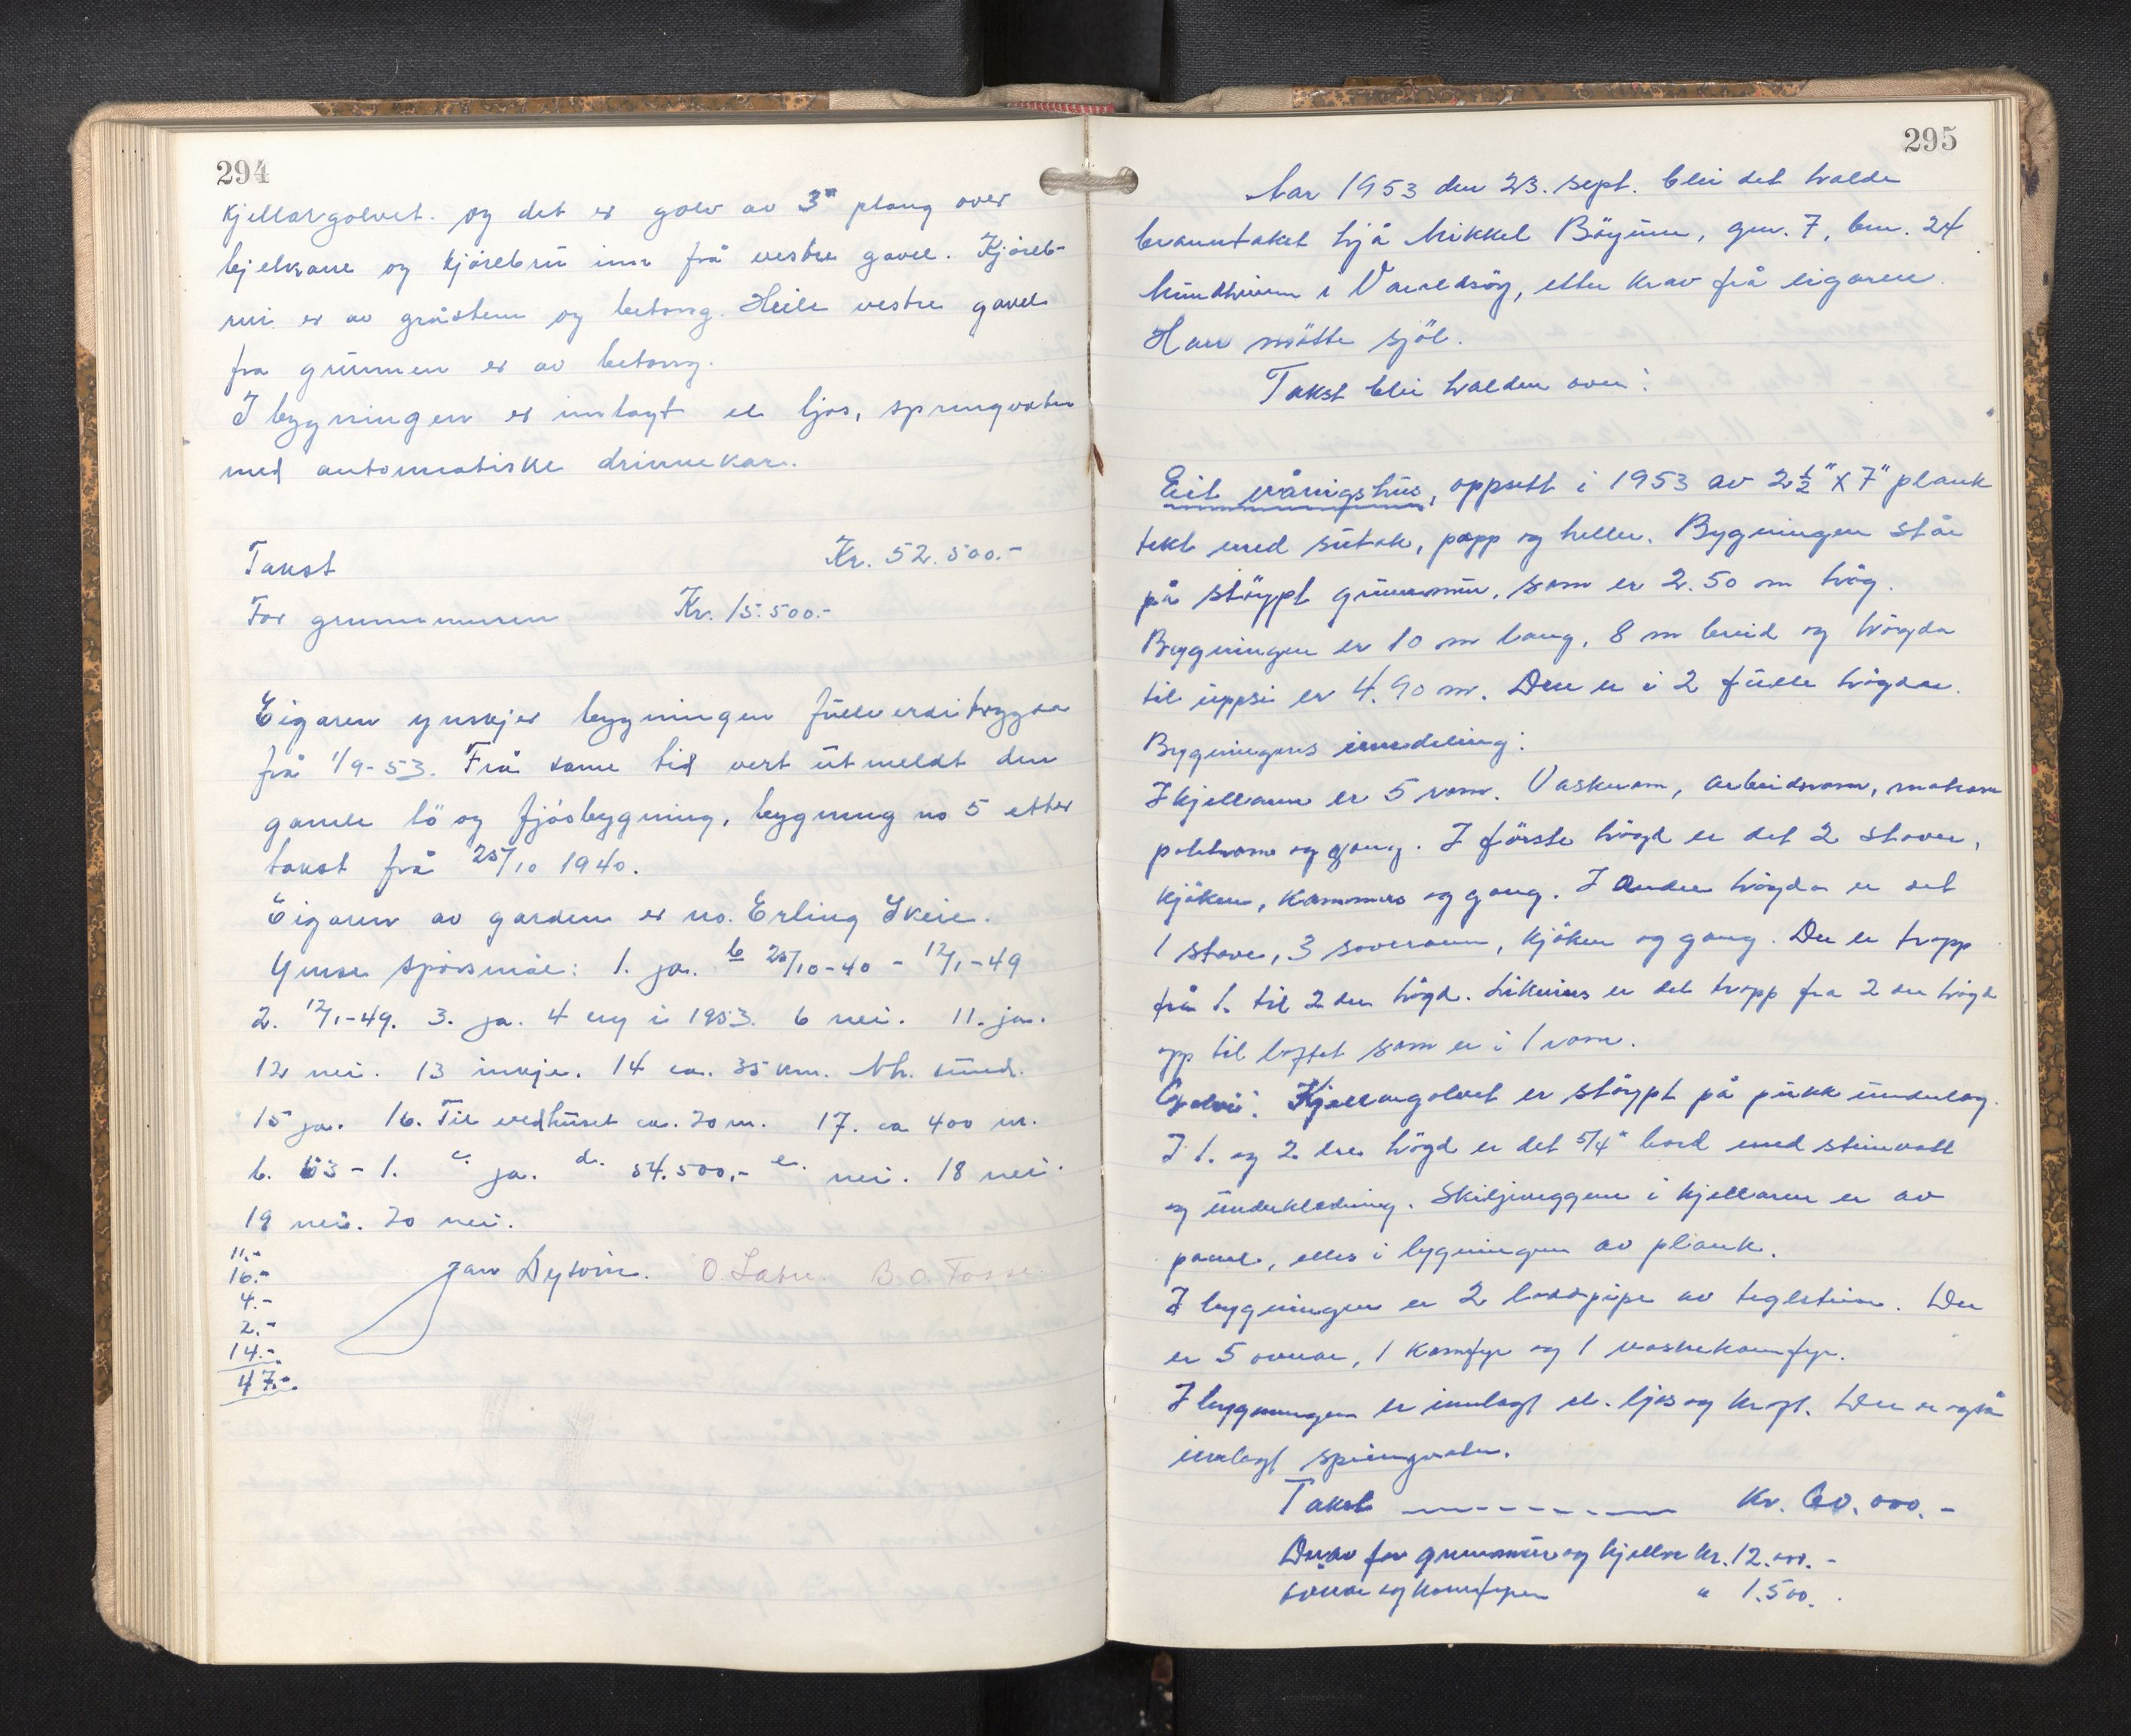 294
Kjellargolvet. og det er golv av 3" plang over
bjelkane og kjörebrú inn frå vestre gavl. Kjöreb-
rui er av gråstein og betong. Heile vestre gavl
fra grünnen er av betong.
I bygningen er innlagt el ljos, springvatn
med automatiske drinnekar.
Takst Kr. 52.500.-
For grunnmuren Kr. 15.500.-
Eigaren ynskjer bygningen fullverditrygda
frå 1/9-53. Frå same tid vert útmeldt den
gamle lö og fjösbygning, bygning no 5 etter
takst frå 25/10 1940.
Eigaren av garden er no. Erling Skeie.
Ymse spörsmål: 1. ja. b 25/10-40 - 12/1-49
2. 12/1-49. 3. ja. 4 ny i 1953. 6 nei. 11. ja.
12 nei. 13 inkje. 14 ca. 35 km. Nh. sund.
15 ja. 16. Til vedhúset ca. 20 m. 17. ca 400 m.
b. 53-1. c. ja. d. 54.500,- e. nei. 18 nei.
19 nei. 20 nei.
11.-
16.-
4.-
2.-
14.-
47.-
Jan Dysvin. O. Sabu. B. O. Fosse
295
Aar 1953 den 23. sept. blei det halde
branntakst hjå Mikkel Böyum, gnr. 7, bnr. 24
Mundheim i Varaldsöy, etter krav frå eigaren.
Han mötte sjöl.
Takst blei halden over:
Eit våningshús, oppsett i 1953 av 2½" x 7" plank
tekt med sútak, papp og heller. Bygningen står
på stöypt grunnmúr, som er 2.50 m hög.
Bygningen er 10 m lang, 8 m breid og högda
til uppsi er 4.90 m. Den er i 2 fulle högdar.
Bygningens inndeling:
I kjellaren er 5 rom. Vaskerom, arbeidsrom, matrom
potetrom og gang. I förste högd er det 2 stover,
kjöken, kammers og gang. I andre högda er det
1 stove, 3 soverom, kjöken og gang. Der er tropp
frå 1. til 2 den högd. Likeins er det tropp fra 2 den högd
opp til loftet som er i 1 rom.
Golvi: Kjellargolvet er stöypt på pukk underlag.
I 1. og 2 dre högd er det 5/4" bord med steinvatt
og underkledning. Skiljeveggene i kjellaren er av
panel, elles i bygningen av plank.
I bygningen er 2 brandpipe av teglstein. Der
er 5 ovnar, 1 komfyr og 1 vaskekomfyr.
I bygningen er innlagt el. ljos og kraft. Der er også
innlagt springvatn.
Takst Kr. 60.000.-
Derav for grunnmúr og kjellar kr. 12.000.-
ovnar og komfyrer " 1.500.